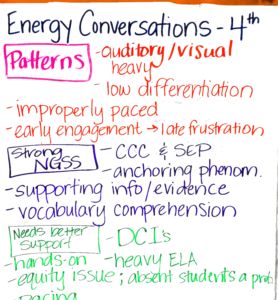 Energy Conversations - 4th
Patterns
- auditory/visual
heavy
- low differentiation
- improperly paced
- early engagement → late frustration
Strong
NGSS
- CCC & SEP
- anchoring phenom.
- supporting info/evidence
- vocabulary comprehension
Needs better
support
- DCI's
- hands-on
- heavy ELA
- equity issue; absent students a